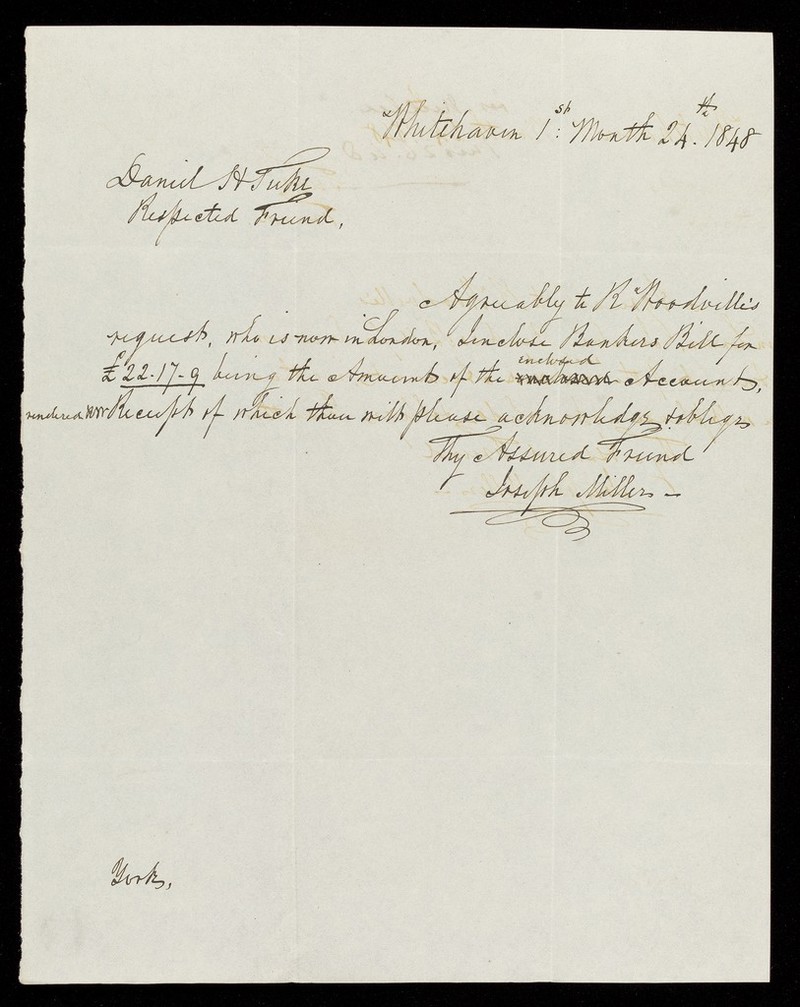 Whitehaven 1st: Month 24.th 1848
Daniel H Tuke
Respected Friend,
Agreeably to R Woodville's
request, who is now in London, I enclose Bankers Bill for
£22-17-9 being the Amount of the enclosed Account,
rendered Receipt of which thou wilt please acknowledge & oblige
Thy Assured Friend
Joseph Miller
York,